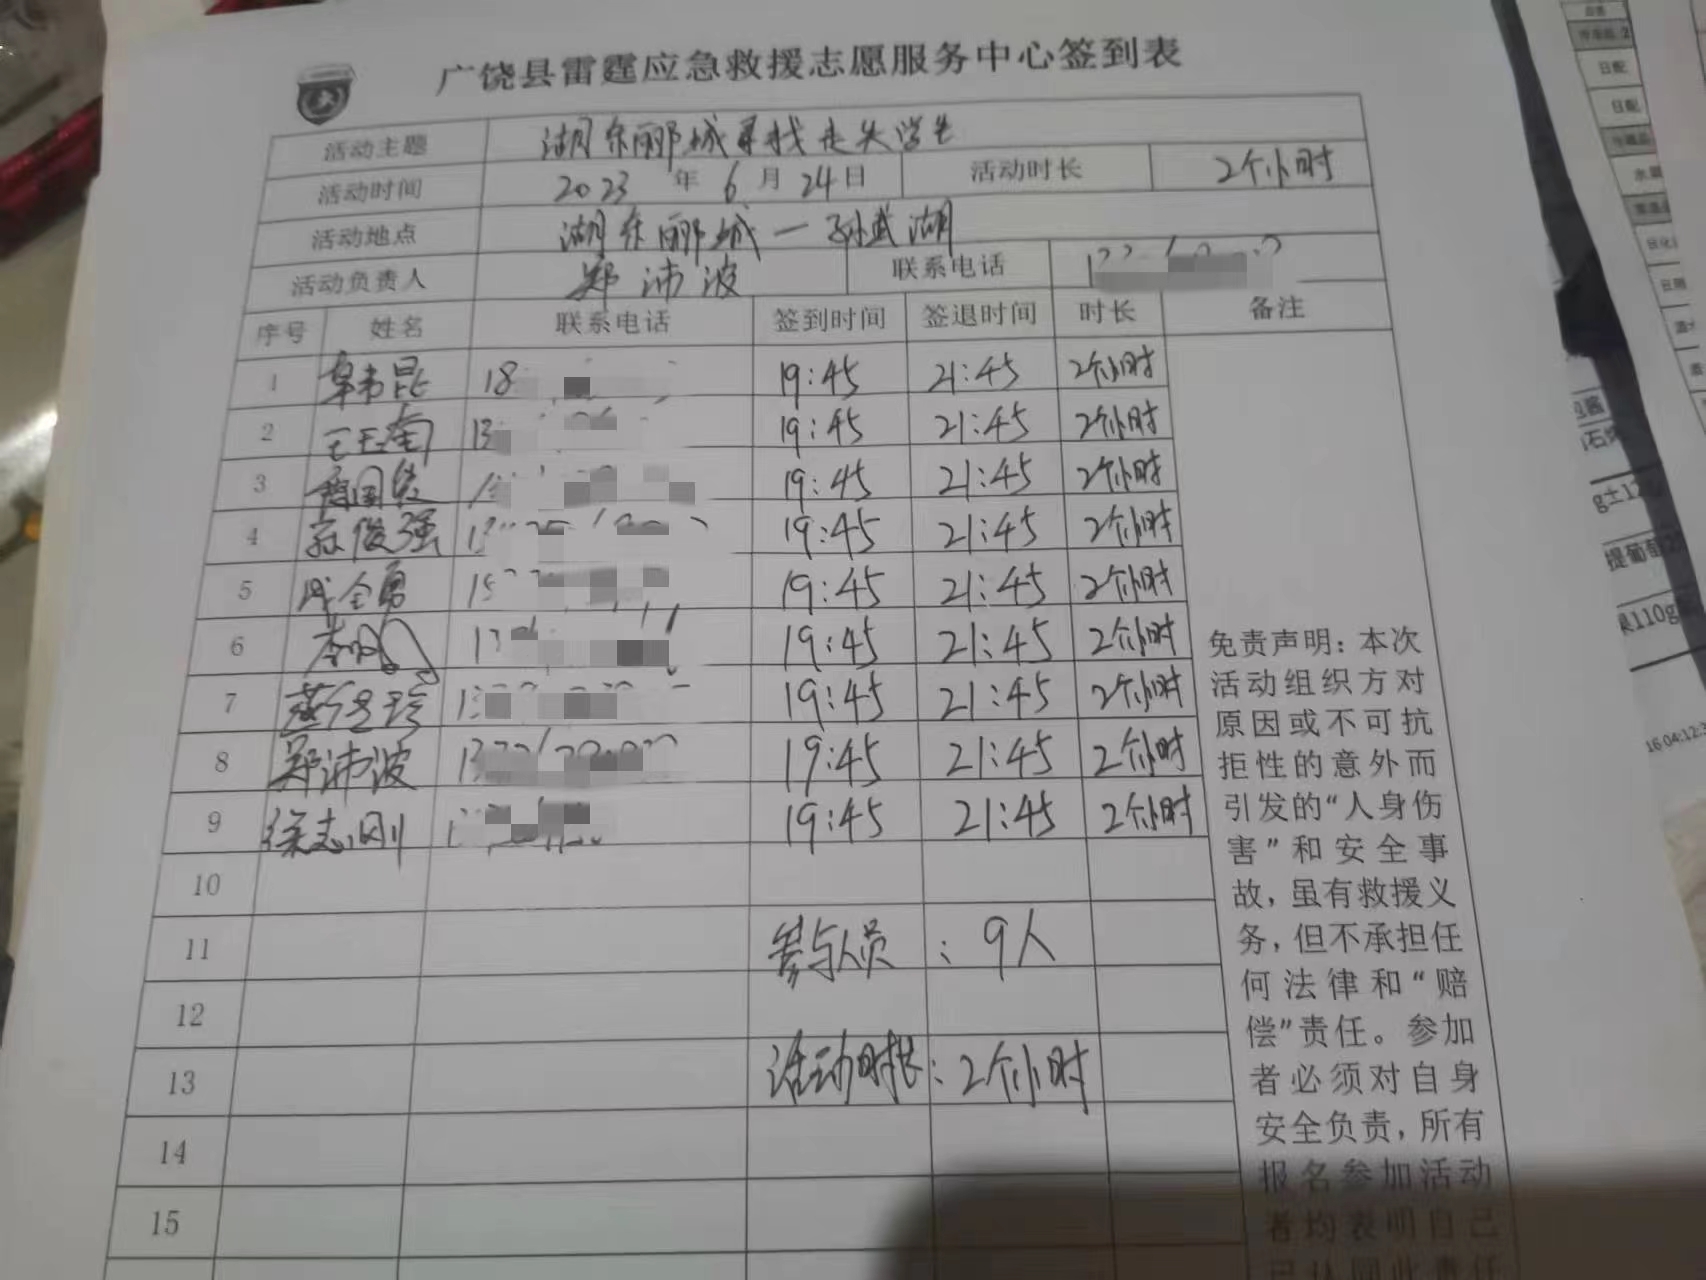 广饶县雷霆应急救援志愿服务中心签到表
活动主题 湖东郦城寻找走失学生
活动时间 2023 年 6 月 24 日 活动时长 2个小时
活动地点 湖东郦城一孙武湖
活动负责人 郑沛波 联系电话
序号 姓名 联系电话 签到时间 签退时间 时长 备注
1 18 19:45 21:45 2个小时
2 13 19:45 21:45 2个小时
3 19:45 21:45 2个小时
4 俊强 19:45 21:45 2个小时
5 19:45 21:45 2个小时
6 19:45 21:45 2个小时
7 19:45 21:45 2个小时
8 郑沛波 19:45 21:45 2个小时
9 徐志刚 19:45 21:45 2个小时
10
11 参与人员:9人
12
13 活动时长:2个小时
14
15
免责声明:本次
活动组织方对
原因或不可抗
拒性的意外而
引发的“人身伤
害”和安全事
故,虽有救援义
务,但不承担任
何法律和“赔
偿”责任。参加
者必须对自身
安全负责,所有
报名参加活动
者均表明自己
日配
日配
110g
16 04:12:3